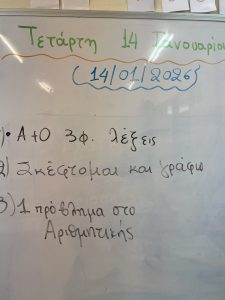 Τετάρτη 14 Ιανουαρίου
(14/01/2026)
)• Α+Ο 3φ. λέξεις
2) Σκέφτομαι και γράφω
3) 1 πρόβλημα στο
Αριθμητικής